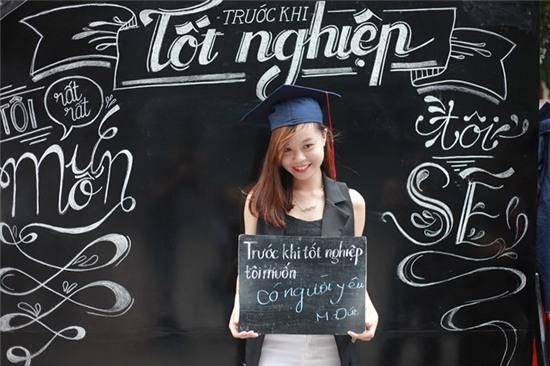 TRƯỚC KHI
Tốt nghiệp
TÔI
rất rất
MUỐN
tôi
SẼ
Trước khi tốt nghiệp
tôi muốn
có người yêu
M. Đức